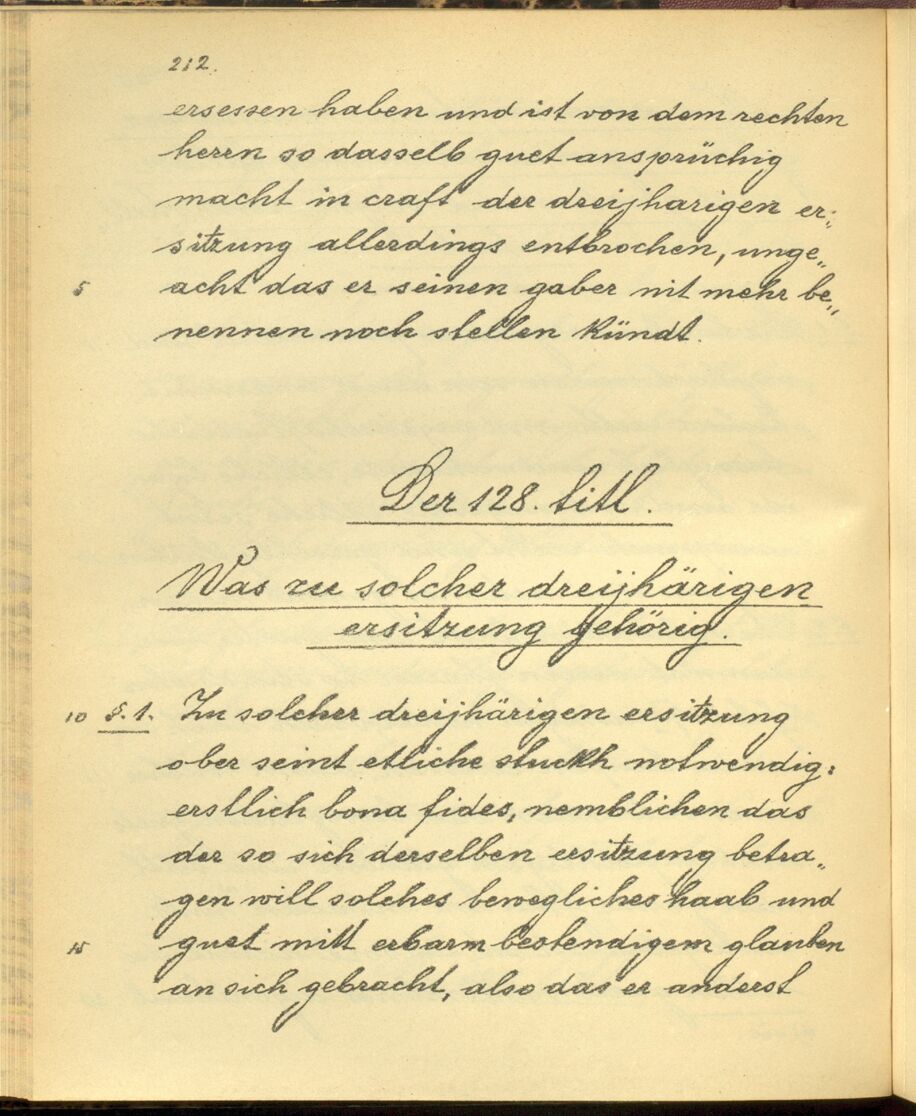 212.
ersessen haben und ist von dem rechten
herrn so dasselb guet ansprüchig
macht in craft der dreijharigen er„
sitzung allerdings entbrochen, unge„
5 acht das er seinen gaber nit mehr be„
nennen noch stellen kündt.
Der 128. titl.
Was zu solcher dreijhärigen
ersitzung gehörig.
10 §.1. Zu solcher dreijhärigen ersitzung
ober seint etliche stuckh notwendig:
erstlich bona fides, nemblichen das
der so sich derselben ersitzung betra„
gen will solches bewegliches haab und
15 guet mitt erbarm bestendigem glauben
an sich gebracht, also das er anderst